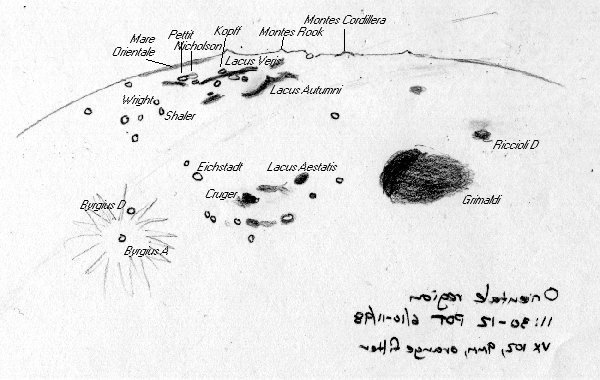 Montes Cordillera
Kopff
Montes Rook
Pettit
Mare Orientale
Nicholson
Lacus Veris
Lacus Autumni
Wright
Shaler
Riccioli D
Eichstadt
Lacus Aestatis
Cruger
Grimaldi
Byrgius D
Byrgius A
Orientale region
11:30-12 PDT 6/10-11/98
VX 102, 9mm, orange filter